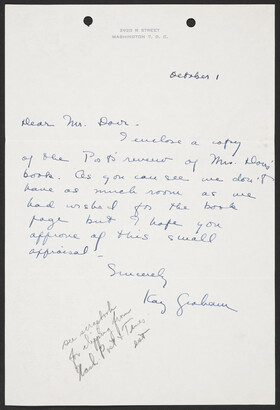 2920 R STREET
WASHINGTON 7, D. C.
October 1
Dear Mr. Dorr -
I enclose a copy
of the Post's review of Mrs. Dorr's
book. As you can see we don't
have as much room as we
had wished for the book
page but I hope you
approve of this small
appraisal -
Sincerely
Kay Graham
see scrapbook
for clipping from
Wash Post & Times